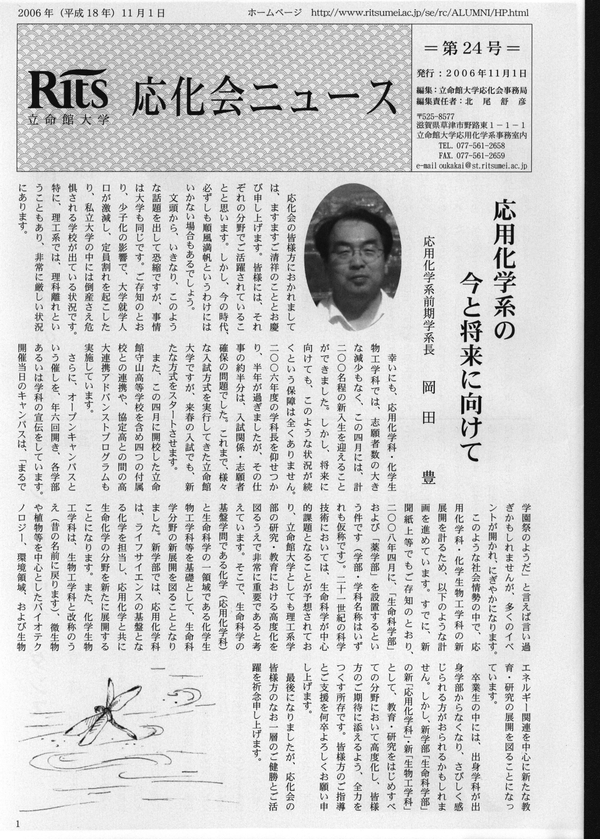 2006年（平成18年）11月1日
ホームページ http://www.ritsumei.ac.jp/se/rc/ALUMNI/HP.html
RiTs
立命館大学
応化会ニュース
＝第24号＝
発行：2006年11月1日
編集：立命館大学応化会事務局
編集責任者：北尾舒彦
〒525-8577
滋賀県草津市野路東1－1－1
立命館大学応用化学系事務室内
TEL. 077-561-2658
FAX. 077-561-2659
e-mail oukakai@st.ritsumei.ac.jp
応用化学系の
今と将来に向けて
応用化学系前期学系長 岡田 豊
応化会の皆様方におかれまして
は、ますますご清祥のこととお慶
び申し上げます。皆様には、それ
ぞれの分野でご活躍されているこ
とと思います。しかし、今の時代、
必ずしも順風満帆というわけには
いかない場合もあるでしょう。
文頭から、いきなり、このよう
な話題を出して恐縮ですが、事情
は大学も同じです。ご存知のとお
り、少子化の影響で、大学就学人
口が激減し、定員割れを起こした
り、私立大学の中には倒産さえ危
惧される学校が出ている状況です。
特に、理工系では、理科離れとい
うこともあり、非常に厳しい状況
にあります。
幸いにも、応用化学科・化学生
物工学科では、志願者数の大き
な減少もなく、この四月には、計
二〇〇名程の新入生を迎えること
ができました。しかし、将来に
向けても、このような状況が続
くという保障は全くありません。
二〇〇六年度の学科長を仰せつか
り、半年が過ぎましたが、その仕
事の約半分は、入試関係・志願者
確保の問題でした。これまで、様々
な入試方式を実行してきた立命館
大学ですが、来春の入試でも、新
たな方式をスタートさせます。
また、この四月に開校した立命
館守山高等学校を含め四つの付属
校との連携や、協定高との間の高
大連携アドバンストプログラムも
実施しています。
さらに、オープンキャンパスと
いう催しを、年六回開き、各学部
あるいは学科の宣伝をしています。
開催当日のキャンパスは、「まるで
学園祭のようだ」と言えば言い過
ぎかもしれませんが、多くのイベ
ントが開かれ、にぎやかになります。
このような社会情勢の中で、応
用化学科・化学生物工学科の新
展開を計るため、以下のような計
画を進めています。すでに、新
聞紙上等でもご存知のとおり、
二〇〇八年四月に、「生命科学部」
および「薬学部」を設置するとい
う件です（学部・学科名称はいず
れも仮称です）。二十一世紀の科学
技術においては、生命科学が中心
的課題となることが予想されてお
り、立命館大学としても理工系学
部の研究・教育における高度化を
図るうえで非常に重要であると考
えています。そこで、生命科学の
基盤学問である化学（応用化学科）
と生命科学の一領域である化学生
物工学科等を基礎として、生命科
学分野の新展開を図ることとなり
ました。新学部では、応用化学科
は、ライフサイエンスの基盤とな
る化学を担当し、応用化学と共に
生命化学の分野を新たに展開する
ことになります。また、化学生物
工学科は、生物工学科と改称のう
え（昔の名前に戻ります）、微生物
や植物等を中心としたバイオテク
ノロジー、環境領域、および生物
エネルギー関連を中心に新たな教
育・研究の展開を図ることになっ
ています。
卒業生の中には、出身学科が出
身学部からなくなり、さびしく感
じられる方がおられるかもしれま
せん。しかし、新学部「生命科学部」
の新「応用化学科」・新「生物工学科」
として、教育・研究をはじめすべ
ての分野において高度化し、皆様
方のご期待に添えるよう、全力を
つくす所存です。皆様方のご指導
とご支援を何卒よろしくお願い申
し上げます。
最後になりましたが、応化会の
皆様方のなお一層のご健勝とご活
躍を祈念申し上げます。
1